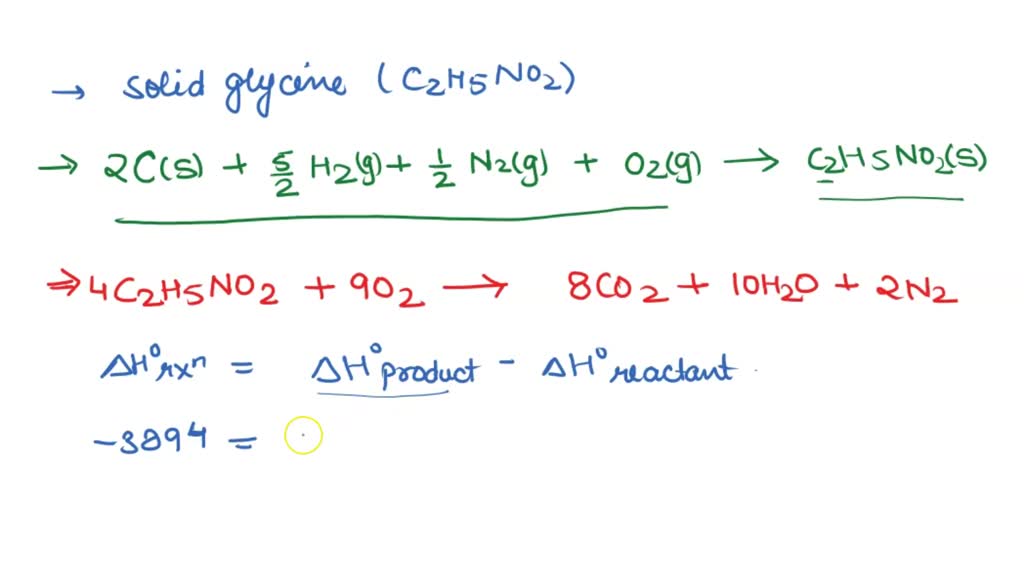 → solid glycine (C2H5NO2)
→ 2C(s) + 5/2 H2(g) + 1/2 N2(g) + O2(g) → C2H5NO2(s)
⇒ 4C2H5NO2 + 9O2 → 8CO2 + 10H2O + 2N2
ΔH°rxn = ΔH°product - ΔH°reactant
-3894 =